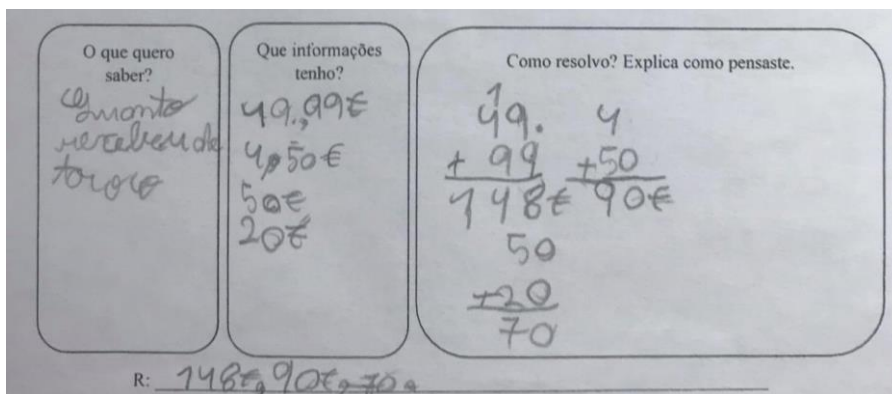 O que quero
saber?
Quanto
recebeu de
troco
Que informações
tenho?
49,99€
4,50€
50€
20€
Como resolvo? Explica como pensaste.
1
49. 4
+ 99 +50
148€ 90€
50
+20
70
R: 148€, 90€, 70.